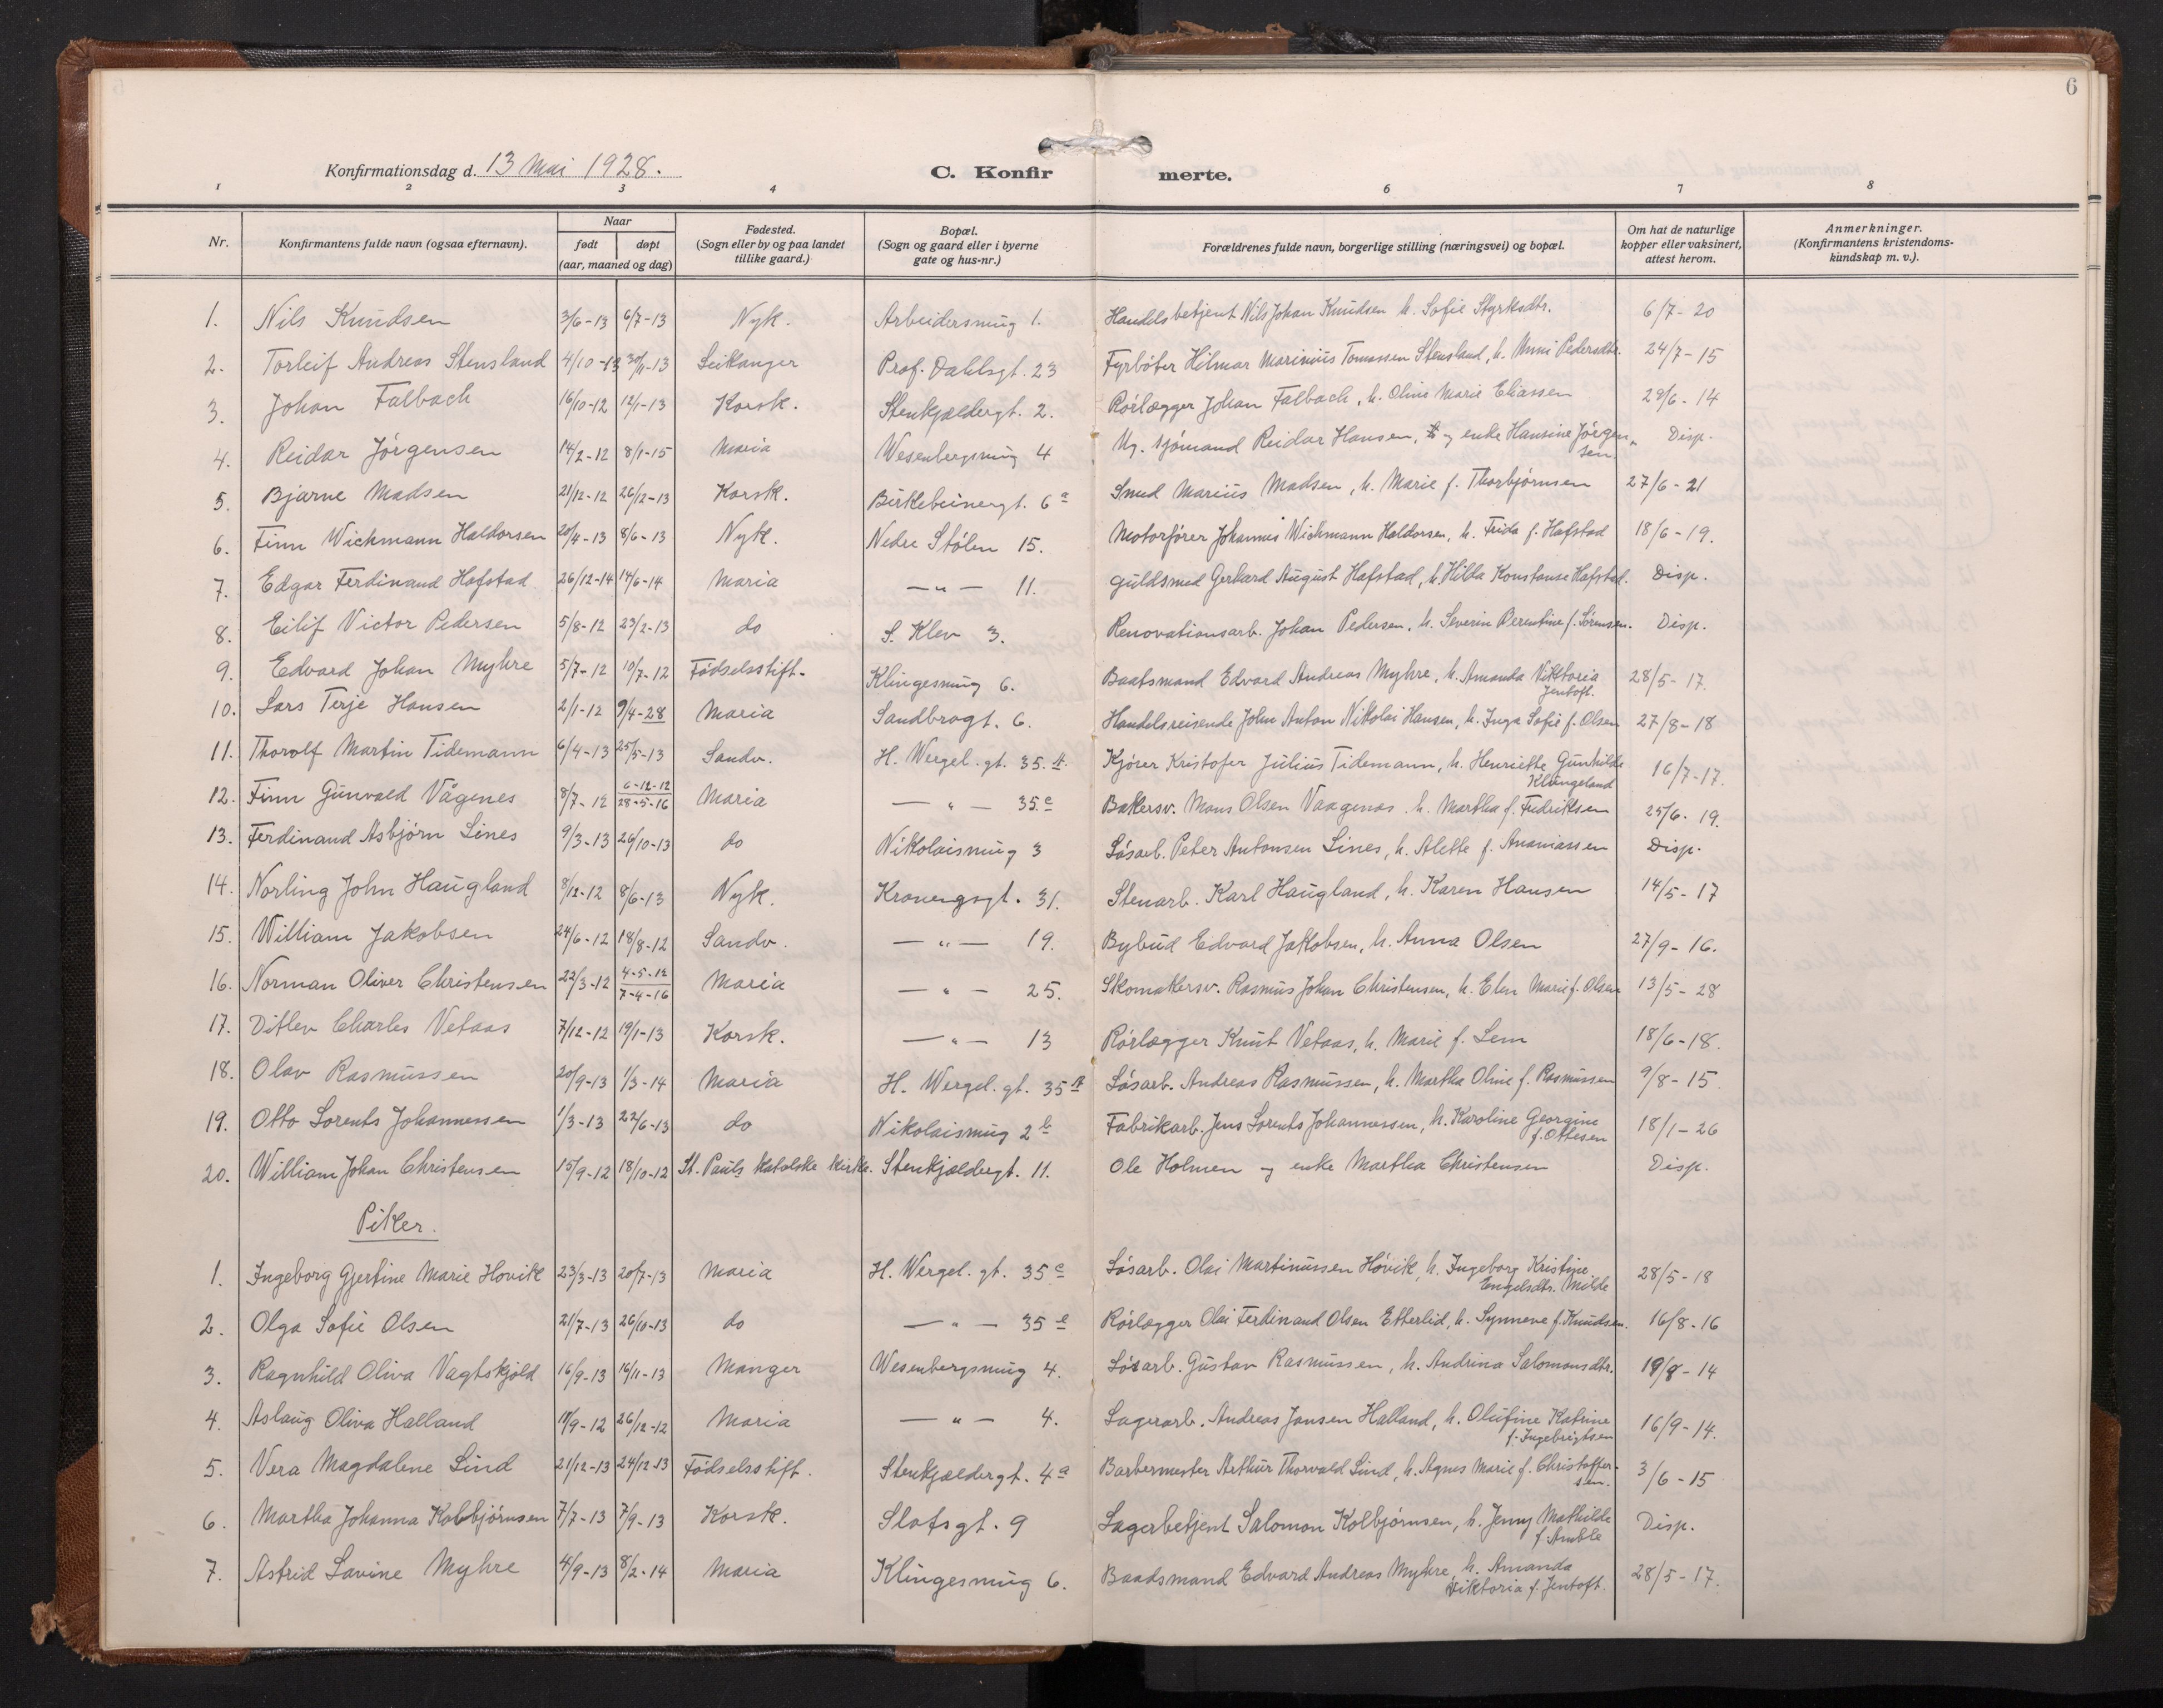 6
Konfirmationsdag d. 13 Mai 1928.
C. Konfirmerte.
1 2 3 4 6 7 8
Nr.
Konfirmantens fulde navn (ogsaa efternavn).
Naar
født døpt
(aar, maaned og dag)
Fødested.
(Sogn eller by og paa landet
tillike gaard.)
Bopæl.
(Sogn og gaard eller i byerne
gate og hus-nr.)
Forældrenes fulde navn, borgerlige stilling (næringsvei) og bopæl.
Om hat de naturlige
kopper eller vaksinert,
attest herom.
Anmerkninger.
(Konfirmantens kristendoms-
kundskap m. v.).
1. Nils Knudsen 3/6-13 6/7-13 Nyk. Arbeidersmug 1. Handelsbetjent Nils Johan Knudsen h. Sofie Styrksdtr. 6/7-20
2. Torleif Andreas Stensland 4/10-13 30/11-13 Leikanger Prof. Dahlsgt. 23 Fyrbøter Hilmar Marinius Tomassen Stensland, h. Unni Pedersdtr. 24/7-15
3. Johan Falbach 16/10-12 12/1-13 Korsk. Stenkjældergt. 2. Rørlægger Johan Falbach, h. Oline Marie Eliassen 29/6-14
4. Reidar Jørgensen 14/2-12 8/1-15 Maria Wesenbergsmug 4 Ug. sjømand Reidar Hansen, og enke Hansine Jørgen- Disp.
sen.
5. Bjarne Madsen 21/12-12 26/12-13 Korsk. Birkebeinergt. 6a Smed Marius Madsen, h. Marie f. Thorbjørnsen 27/6-21
6. Finn Wichmann Haldorsen 20/4-13 8/6-13 Nyk. Nedre Stølen 15. Motorfører Johannes Wichmann Haldorsen, h. Frida f. Hafstad 18/6-19.
7. Edgar Ferdinand Hafstad 26/12-14 14/6-14 Maria —„— 11. Guldsmed Gerhard August Hafstad, h. Hilda Konstanse Hafstad. Disp.
8. Eilif Victor Pedersen 5/8-12 23/2-13 do S. Klev 3. Renovationsarb. Johan Pedersen, h. Severin Berentine f. Sørensen. Disp.
9. Edvard Johan Myhre 5/7-12 10/7-12 Fødselsstift. Klingesmug 6. Baatsmand Edvard Andreas Myhre, h. Amanda Viktoria 28/5-17.
Jentoft.
10. Lars Terje Hansen 2/1-12 9/4-28 Maria Sandbrogt. 6. Handelsreisende John Anton Nikolai Hansen, h. Inga Sofie f. Olsen 27/8-18
11. Thorolf Martin Tidemann 6/4-13 25/5-13 Sandv. H. Wergel. gt. 35. Kjører Kristofer Julius Tidemann, h. Henriette Gunhilde 16/7-17.
Klungeland
12. Finn Gunvald Vågenes 8/7-12 6-12-12 28-5-16 Maria —„— 35c Bakersv. Mons Olsen Vaagenas h. Martha f. Fredriksen 25/6-19.
13. Ferdinand Asbjørn Lines 9/3-13 26/10-13 do Nikolaismug 3 Løsarb. Peter Antonsen Lines, h. Alette f. Ananiassen Disp.
14. Norling John Haugland 8/12-12 8/6-13 Nyk. Kronengsgt. 31. Stenarb. Karl Haugland, h. Karen Hansen 14/5-17
15. William Jakobsen 24/6-12 18/8-12 Sandv. —„— 19. Bybud Edvard Jakobsen, h. Anna Olsen 27/9-16.
16. Norman Oliver Christensen 22/3-12 4-5-12 7-4-16 Maria —„— 25. Skomakersv. Rasmus Johan Christensen, h. Elen Marie f. Olsen 13/5-28
17. Ditlev Charles Vetaas 7/12-12 19/1-13 Korsk. —„— 13 Rørlægger Knut Vetaas, h. Marie f. Lem 18/6-18.
18. Olav Rasmussen 20/9-13 1/3-14 Maria H. Wergel. gt. 35 Løsarb. Andreas Rasmussen, h. Martha Oline f. Rasmussen 9/8-15.
19. Otto Lorents Johannessen 1/3-13 22/6-13 do Nikolaismug 2b Fabrikarb. Jens Lorents Johannessen, h. Karoline Georgine 18/1-26
f. Ottesen
20. William Johan Christensen 15/9-12 18/10-12 St. Pauls katolske kirke. Stenkjældergt. 11. Ole Holmen og enke Martha Christensen Disp.
Piker.
1. Ingeborg Gjertine Marie Hovik 23/3-13 20/7-13 Maria H. Wergel. gt. 35c Løsarb. Olai Martinussen Høvik, h. Ingeborg Kristine 28/5-18
Engelsdtr. Milde
2. Olga Sofie Olsen 21/7-13 26/10-13 do —„— 35e Rørlægger Olai Ferdinand Olsen Etterlid, h. Synneve f. Knudsen. 16/8-16
3. Ragnhild Oliva Vagtskjold 16/9-13 16/11-13 Manger Wesenbergsmug 4. Løsarb. Gustav Rasmussen, h. Andrina Salomonsdtr. 19/8-14
4. Aslaug Oliva Halland 11/9-12 26/12-12 Maria —„— 4. Lagerarb. Andreas Jansen Halland, h. Olufine Katrine 16/9-14.
f. Ingebrigtsen
5. Vera Magdalene Lind 21/12-13 24/12-13 Fødselsstift. Stenkjældergt. 4a Barbermester Arthur Thorvald Lind, h. Agnes Marie f. Christoffer- 3/6-15
sen.
6. Martha Johanna Kolbjørnsen 7/7-13 7/9-13 Korsk. Slotsgt. 9 Lagerbetjent Salomon Kolbjørnsen, h. Jenny Mathilde Disp.
f. Amble
7. Astrid Lavine Myhre 4/9-13 8/2-14 Maria Klingesmug 6. Baadsmand Edvard Andreas Myhre, h. Amanda 28/5-17.
Viktoria f. Jentoft.